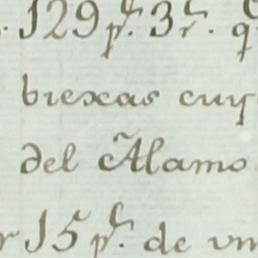 129 p.s 3 r.s q
biexas cuy
del Alamo
15 p.s de vn